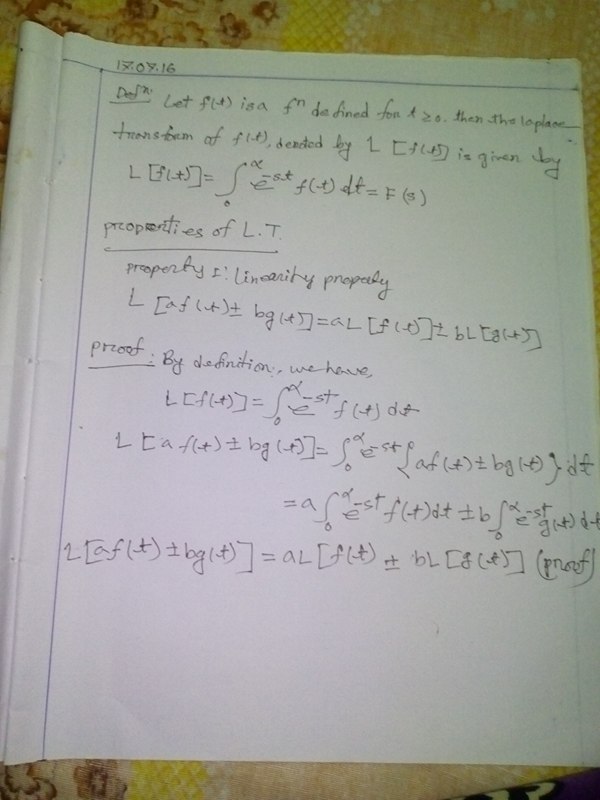 17.07.16
Defⁿ: Let f(t) is a fⁿ defined for t ≥ 0. then the laplace
transform of f(t), denoted by L [f(t)] is given by
L [f(t)] = ∫₀^α e^-st f(t) dt = F(s)
properties of L.T.
property I: linearity property
L [af(t) ± bg(t)] = aL[f(t)] ± bL[g(t)]
proof: By definition, we have,
L[f(t)] = ∫₀^α e^-st f(t) dt
L [af(t) ± bg(t)] = ∫₀^α e^-st {af(t) ± bg(t)} dt
= a∫₀^α e^-st f(t) dt ± b∫₀^α e^-st g(t) dt
L[af(t) ± bg(t)] = aL[f(t)] ± bL[g(t)] (proof)